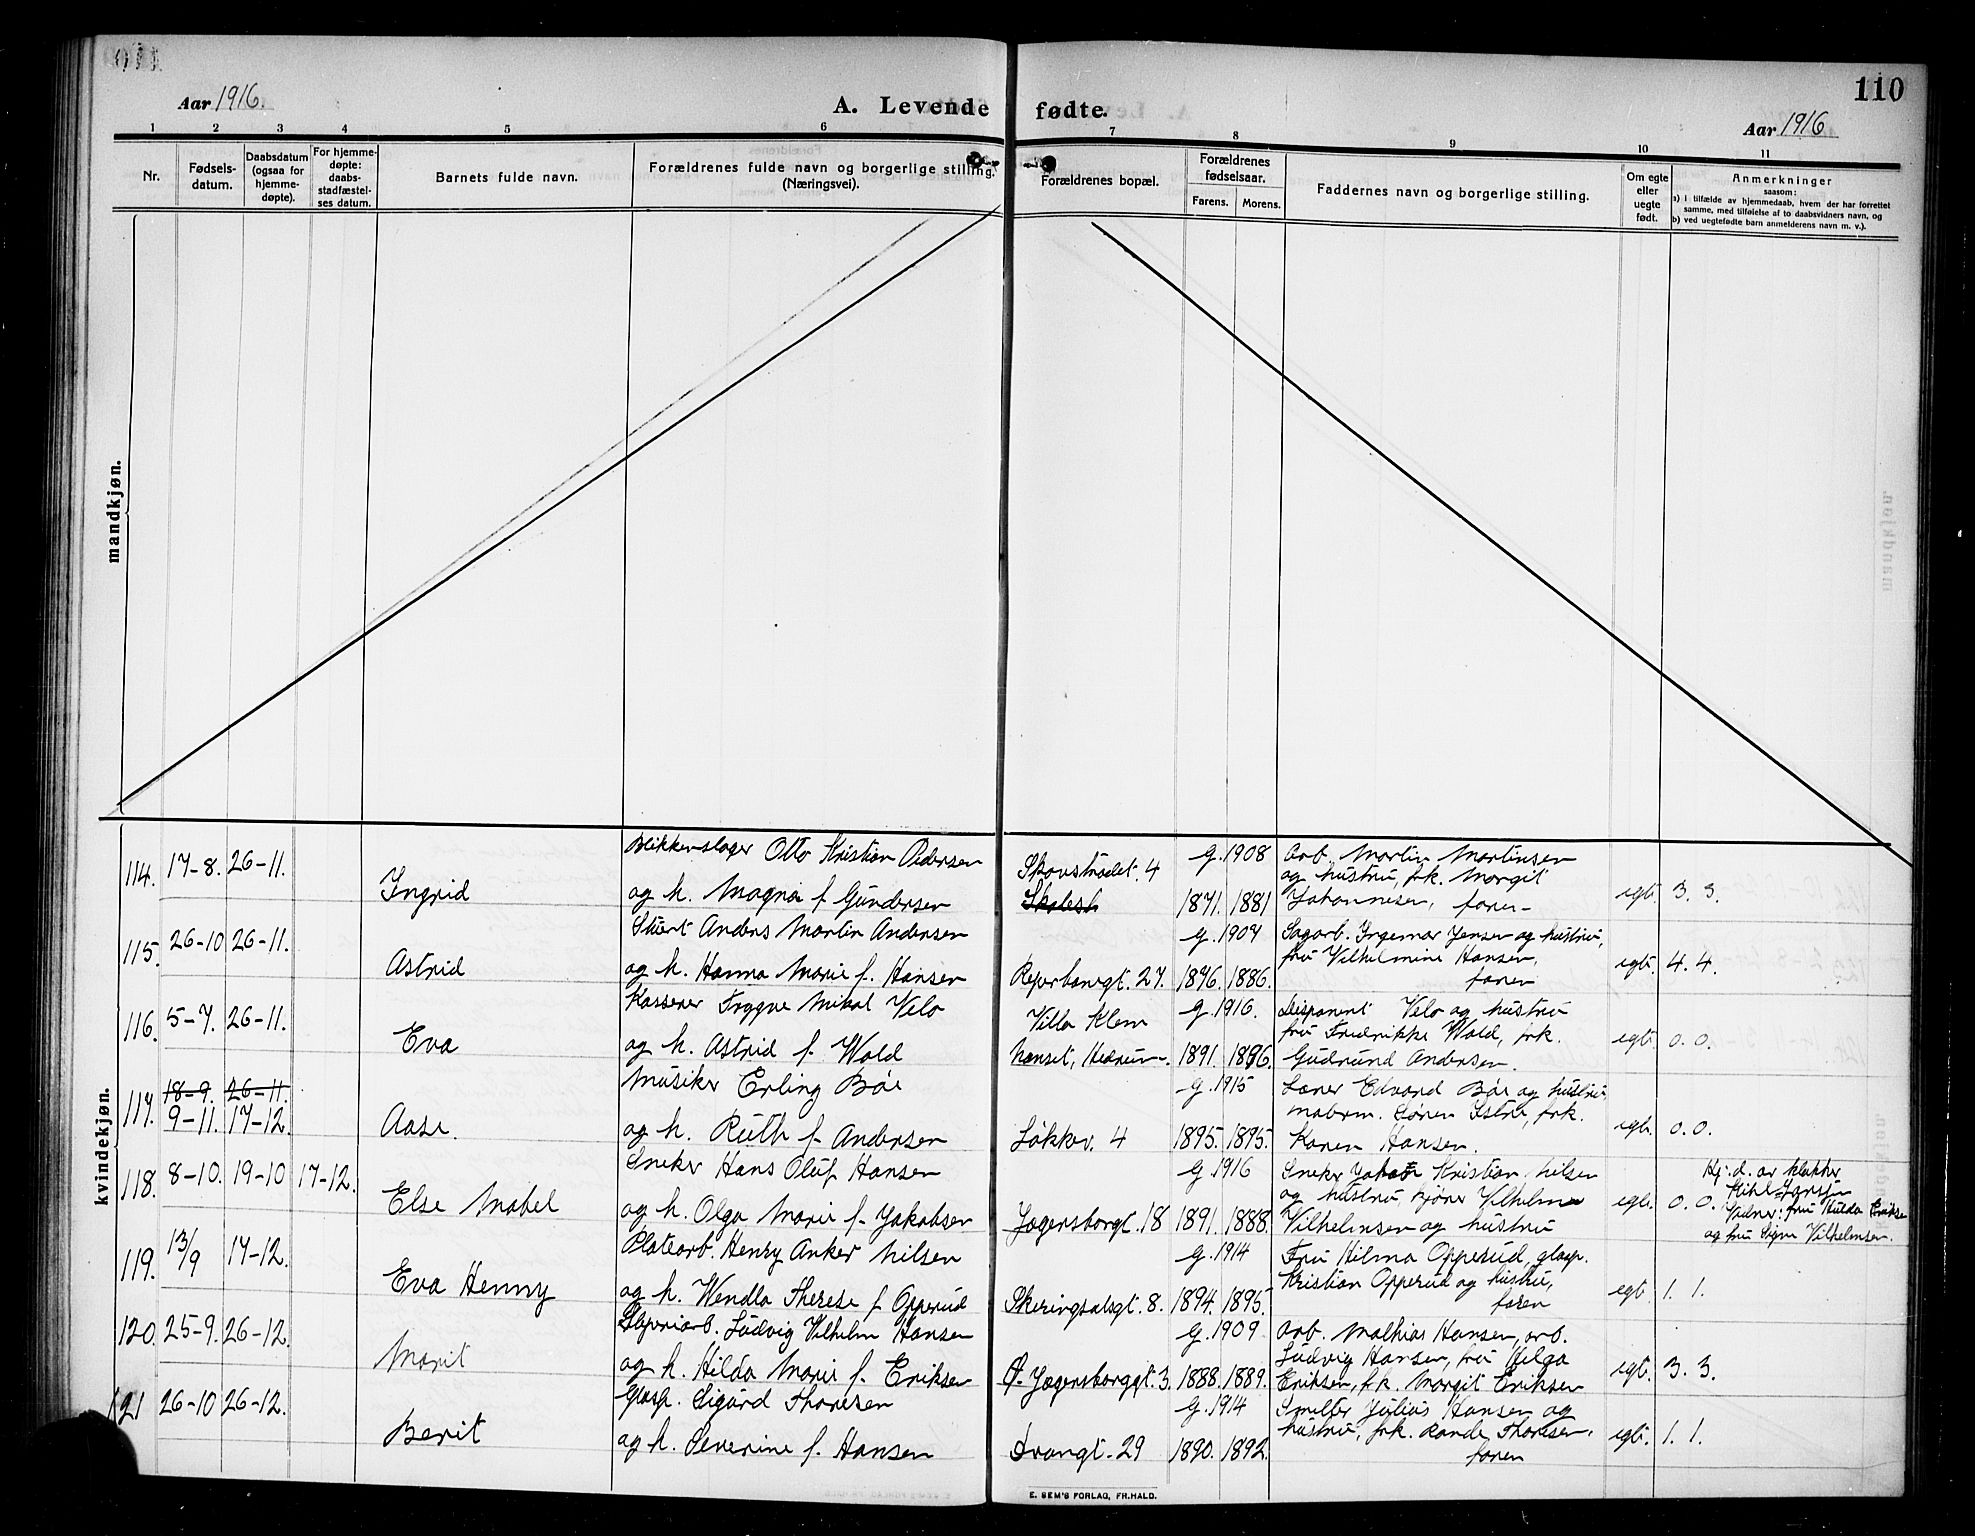 Aar 1916.
A. Levende fødte.
110
Aar 1916
1 2 3 4 5 6 7 8 9 10 11
Nr.
Fødsels-
datum.
Daabsdatum
(ogsaa for
hjemme-
døpte).
For hjemme-
døpte:
daabs-
stadfæstel-
ses datum.
Barnets fulde navn.
Forældrenes fulde navn og borgerlige stilling.
(Næringsvei).
Forældrenes bopæl.
Forældrenes
fødselsaar.
Farens. Morens.
Faddernes navn og borgerlige stilling.
Om egte
eller
uegte
født.
Anmerkninger
saasom:
a) I tilfælde av hjemmedaab, hvem der har forrettet
samme, med tilføielse af to daabsvidners navn, og
b) ved uegtefødte barn anmelderens navn m. v.).
mandkjøn.
kvindekjøn.
114. 17-8. 26-11. Blikkenslager Otto Kristian Pedersen Skovstrædet. 4 g. 1908 Arb. Martin Martinsen
og hustru, frk. Margit
Ingrid og h. Magna f. Gundersen 1871. 1881 Johannesen, faren - egt. 3. 3.
115. 26-10 26-11. Anders Martin Andersen g. 1907 Sagarb. Ingemar Jensen og hustru,
fru Vilhelmine Hansen,
Astrid og h. Hanna Marie f. Hansen Reperbanegt. 27. 1876. 1886. faren egt. 4. 4.
116. 5-7. 26-11. Kasserer Trygve Mikal Velo Villa Klem g. 1916. Disponent Velo og hustru
fru Fredrikke Wold, frk.
Eva og h. Astrid f. Wold Nanset, Hedrum. 1891. 1896. Gudrund Andersen. egt. 0. 0.
117. 18-9. 26-11. Musiker Erling Bøe g. 1915 Lærer Edvard Bøe og hustru,
9-11. 17-12. Søren Istre, frk.
Aase. og h. Ruth f. Andersen Løkkev. 4 1895. 1895. Karen Hansen. egt. 0. 0.
118. 8-10. 19-10 17-12. Sneker Hans Oluf Hansen g. 1916 Sneker Kristian Nilsen
og hustru, Vilhelm
Else Mabel og h. Olga Marie f. Jakobsen Jegersborgt. 18 1891. 1888. Vilhelmsen og hustru egt. 0. 0.
Hj. d. av klokker
Vidner: fru Hulda Eriksen
og fru Signe Vilhelmsen.
119. 13/9 17-12. Platearb. Henry Anker Nilsen g. 1914 Fru Hilma Opperud, glasp.
Kristian Opperud og hustru,
Eva Henny og h. Wendla Therese f. Opperud Skeringsalsgt. 8. 1894. 1895. faren egt. 1. 1.
120. 25-9. 26-12. Ludvig Vilhelm Hansen g. 1909 Arb. Mathias Hansen, arb.
Ludvig Hansen, fru Helga
Marit og h. Hilda Marie f. Eriksen Ø. Jegersborggt. 3. 1888. 1889. Eriksen, frk. Margit Eriksen egt. 3. 3.
121 26-10 26-12. Glasp. Sigurd Thoresen g. 1914 Smelter Julius Hansen og
hustru, frk. Randi Thoresen,
Berit og h. Severine f. Hansen Trangt. 29 1890. 1892. faren egt. 1. 1.
E. SEM'S FORLAG, FR.HALD.